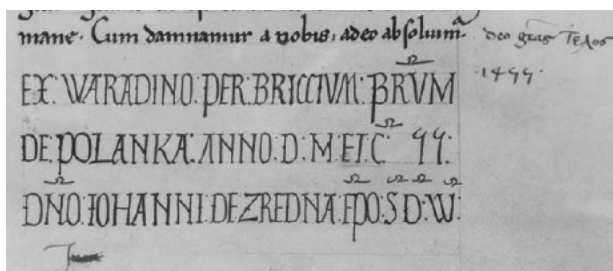 mane. Cum damnamur a vobis, adeo absoluim̃
deo grãs ΤΕλος
1455.
EX: WARADINO: PER: BRICCIVM: PRVM
DE: POLANKA: ANNO: D: M: ET: C: 55:
DNO: IOHANNI: DE ZREDNA: EPO: S: D: W: